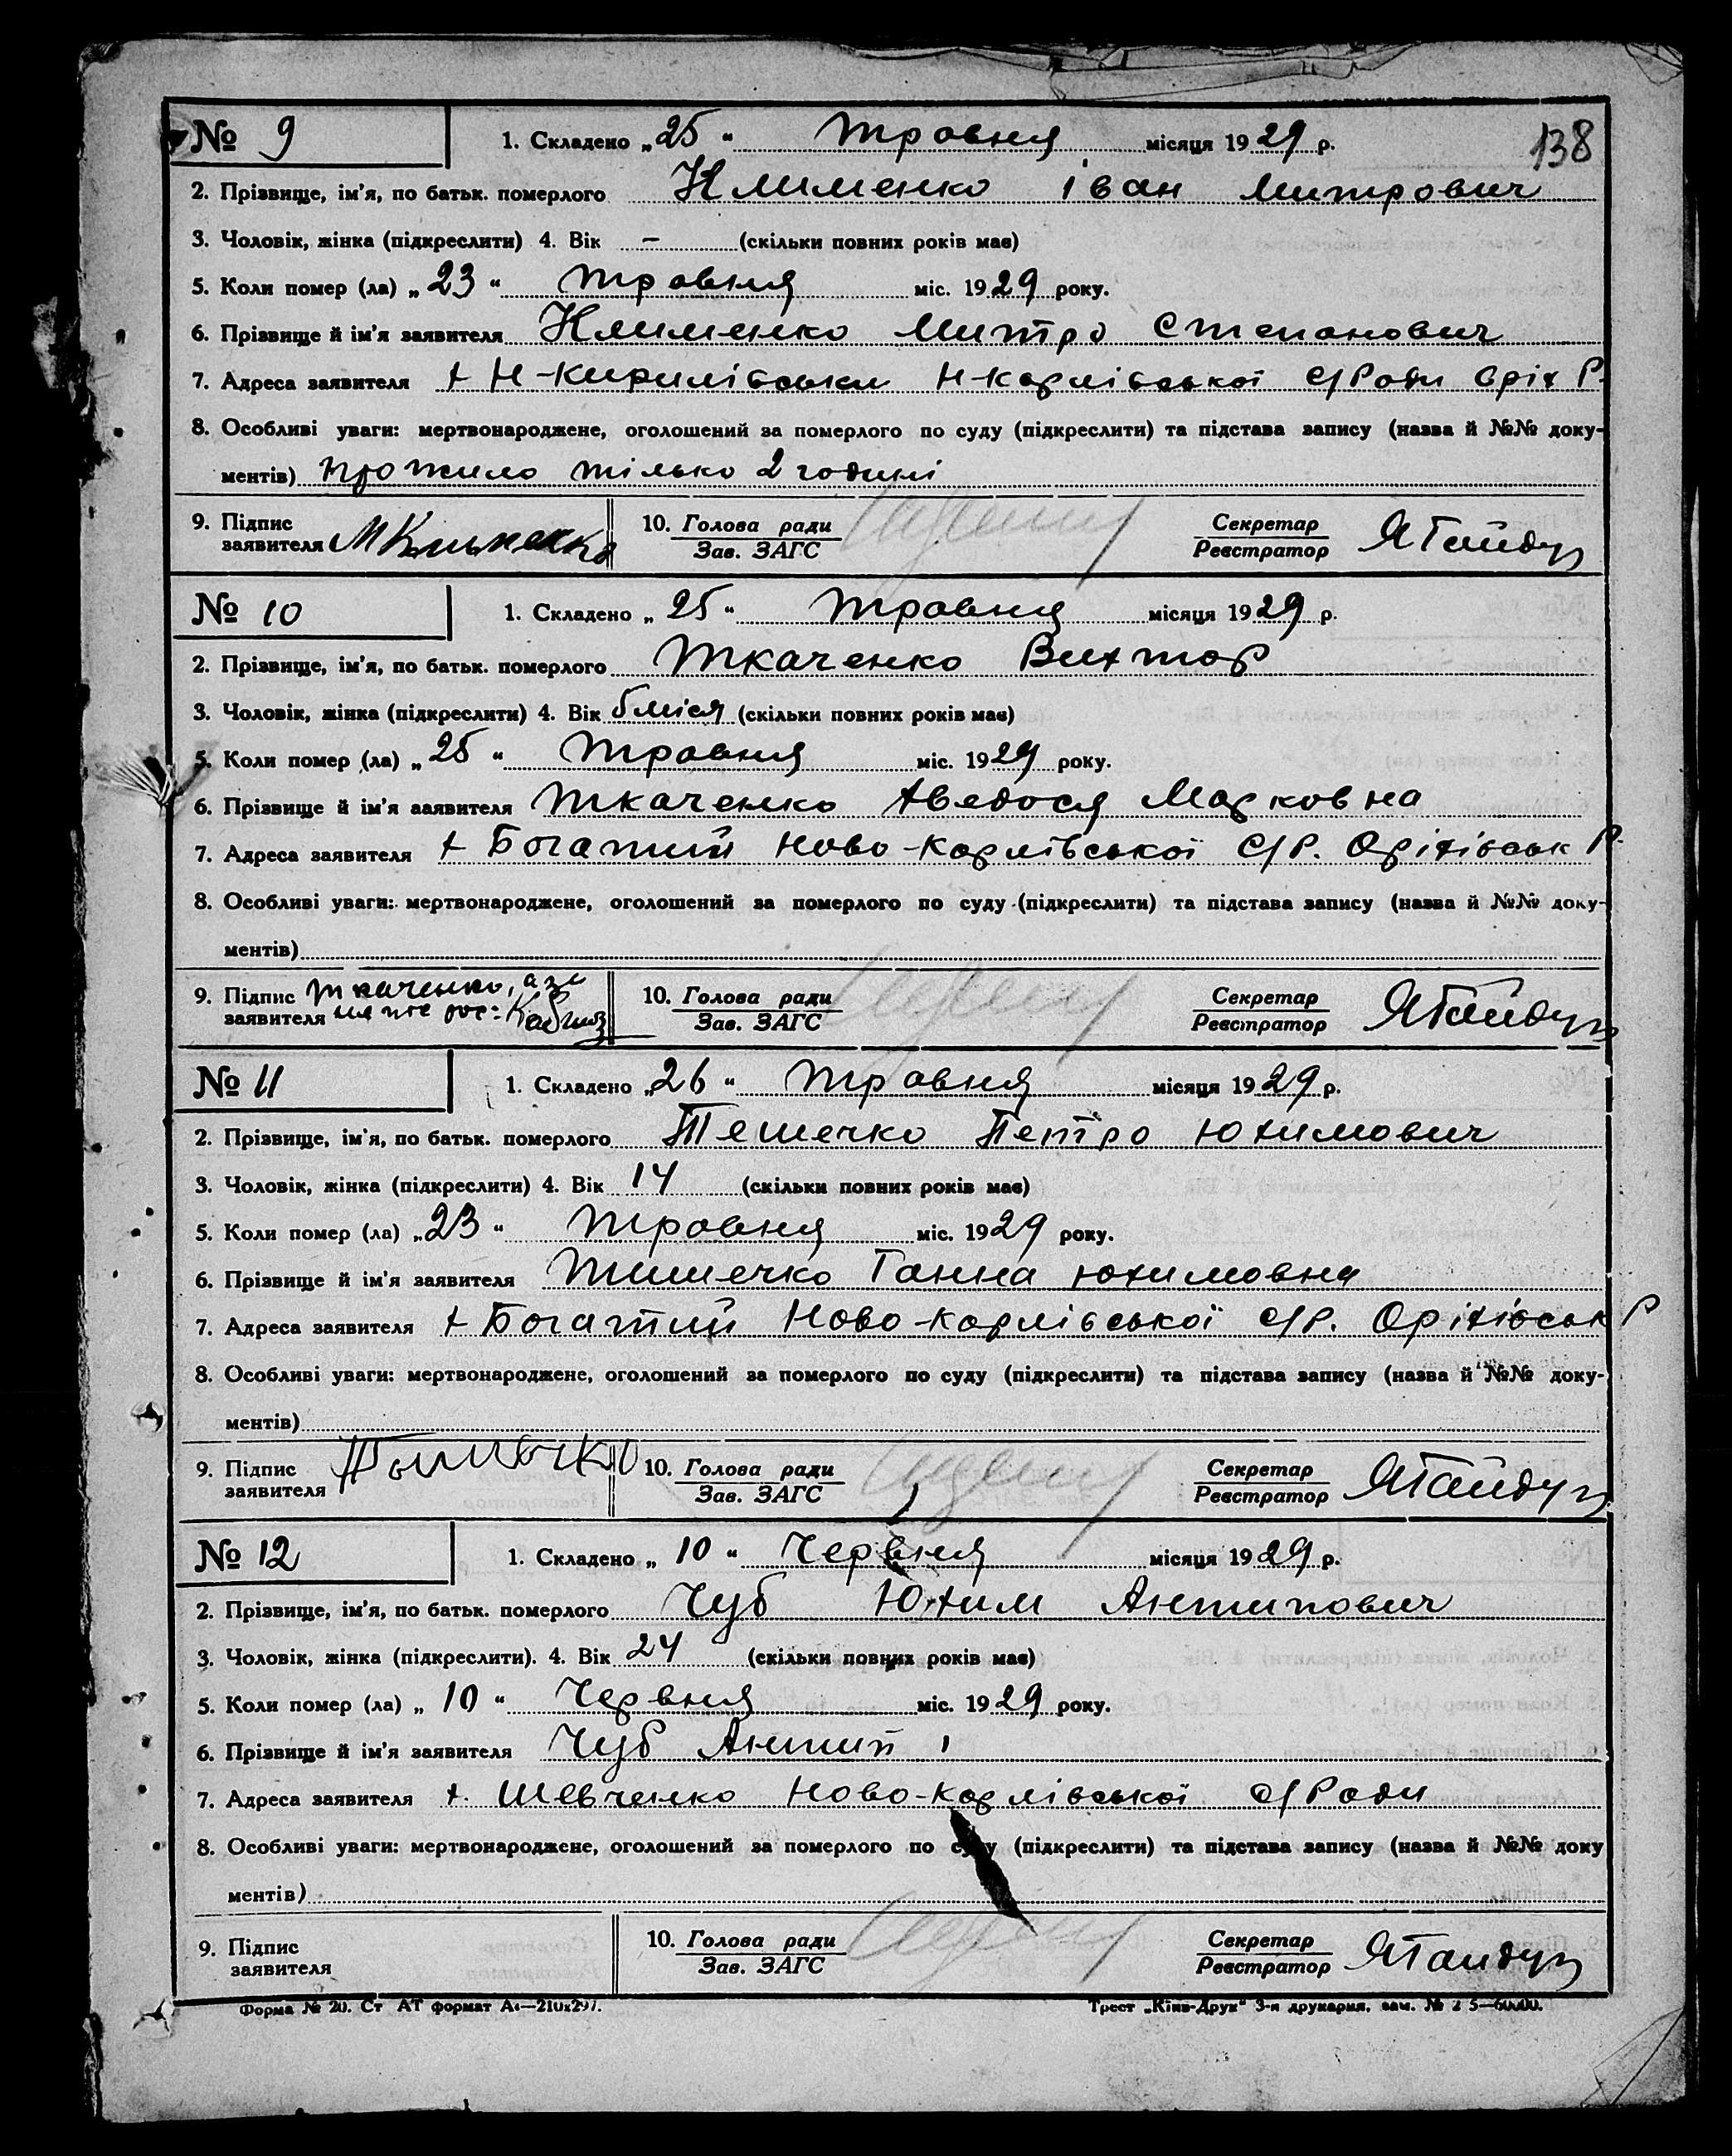 138
№ 9 1. Складено „25“ травня місяця 1929 р.
2. Прізвище, ім'я, по батьк. померлого Клименко Іван Митрович
3. Чоловік, жінка (підкреслити) 4. Вік – (скільки повних років має)
5. Коли помер (ла) „23“ травня міс. 1929 року.
6. Прізвище й ім'я заявителя Клименко Митро Степанович
7. Адреса заявителя х Н-Кирилівськи Н-Карлівської С/Ради Оріх Р.
8. Особливі уваги: мертвонароджене, оголошений за померлого по суду (підкреслити) та підстава запису (назва й №№ доку-
ментів) прожило тілько 2 годині
9. Підпис 10. Голова ради Секретар
заявителя Зав. ЗАГС Реєстратор ЯГайдун
№ 10 1. Складено „25“ травня місяця 1929 р.
2. Прізвище, ім'я, по батьк. померлого Ткаченко Вихтор
3. Чоловік, жінка (підкреслити) 4. Вік 6 міся (скільки повних років має)
5. Коли помер (ла) „25“ травня міс. 1929 року.
6. Прізвище й ім'я заявителя Ткаченко Хведося Марковна
7. Адреса заявителя х Богатий Ново-Карлівської С/Р. Оріхівськ Р.
8. Особливі уваги: мертвонароджене, оголошений за померлого по суду (підкреслити) та підстава запису (назва й №№ доку-
ментів)
9. Підпис Ткаченко, 10. Голова ради Секретар
заявителя Зав. ЗАГС Реєстратор ЯГайдун
№ 11 1. Складено „26“ травня місяця 1929 р.
2. Прізвище, ім'я, по батьк. померлого Темечко Петро Юхимович
3. Чоловік, жінка (підкреслити) 4. Вік 14 (скільки повних років має)
5. Коли помер (ла) „23“ травня міс. 1929 року.
6. Прізвище й ім'я заявителя Тимечко Ганна Юхимовна
7. Адреса заявителя х Богатий Ново-Карлівської С/Р. Оріхівськ Р
8. Особливі уваги: мертвонароджене, оголошений за померлого по суду (підкреслити) та підстава запису (назва й №№ доку-
ментів)
9. Підпис Тымычко 10. Голова ради Секретар
заявителя Зав. ЗАГС Реєстратор ЯГайдун
№ 12 1. Складено „10“ Червня місяця 1929 р.
2. Прізвище, ім'я, по батьк. померлого Чуб Юхим Антипович
3. Чоловік, жінка (підкреслити). 4. Вік 24 (скільки повних років має)
5. Коли помер (ла) „10“ Червня міс. 1929 року.
6. Прізвище й ім'я заявителя Чуб Антип
7. Адреса заявителя х. Шевченко Ново-Карлівської С/Ради
8. Особливі уваги: мертвонароджене, оголошений за померлого по суду (підкреслити) та підстава запису (назва й №№ доку
ментів)
9. Підпис 10. Голова ради Секретар
заявителя Зав. ЗАГС Реєстратор ЯГайдун
Форма № 20. Ст АТ формат А4—210x297. Трест „Київ-Друк“ 3-я друкарня, зам.